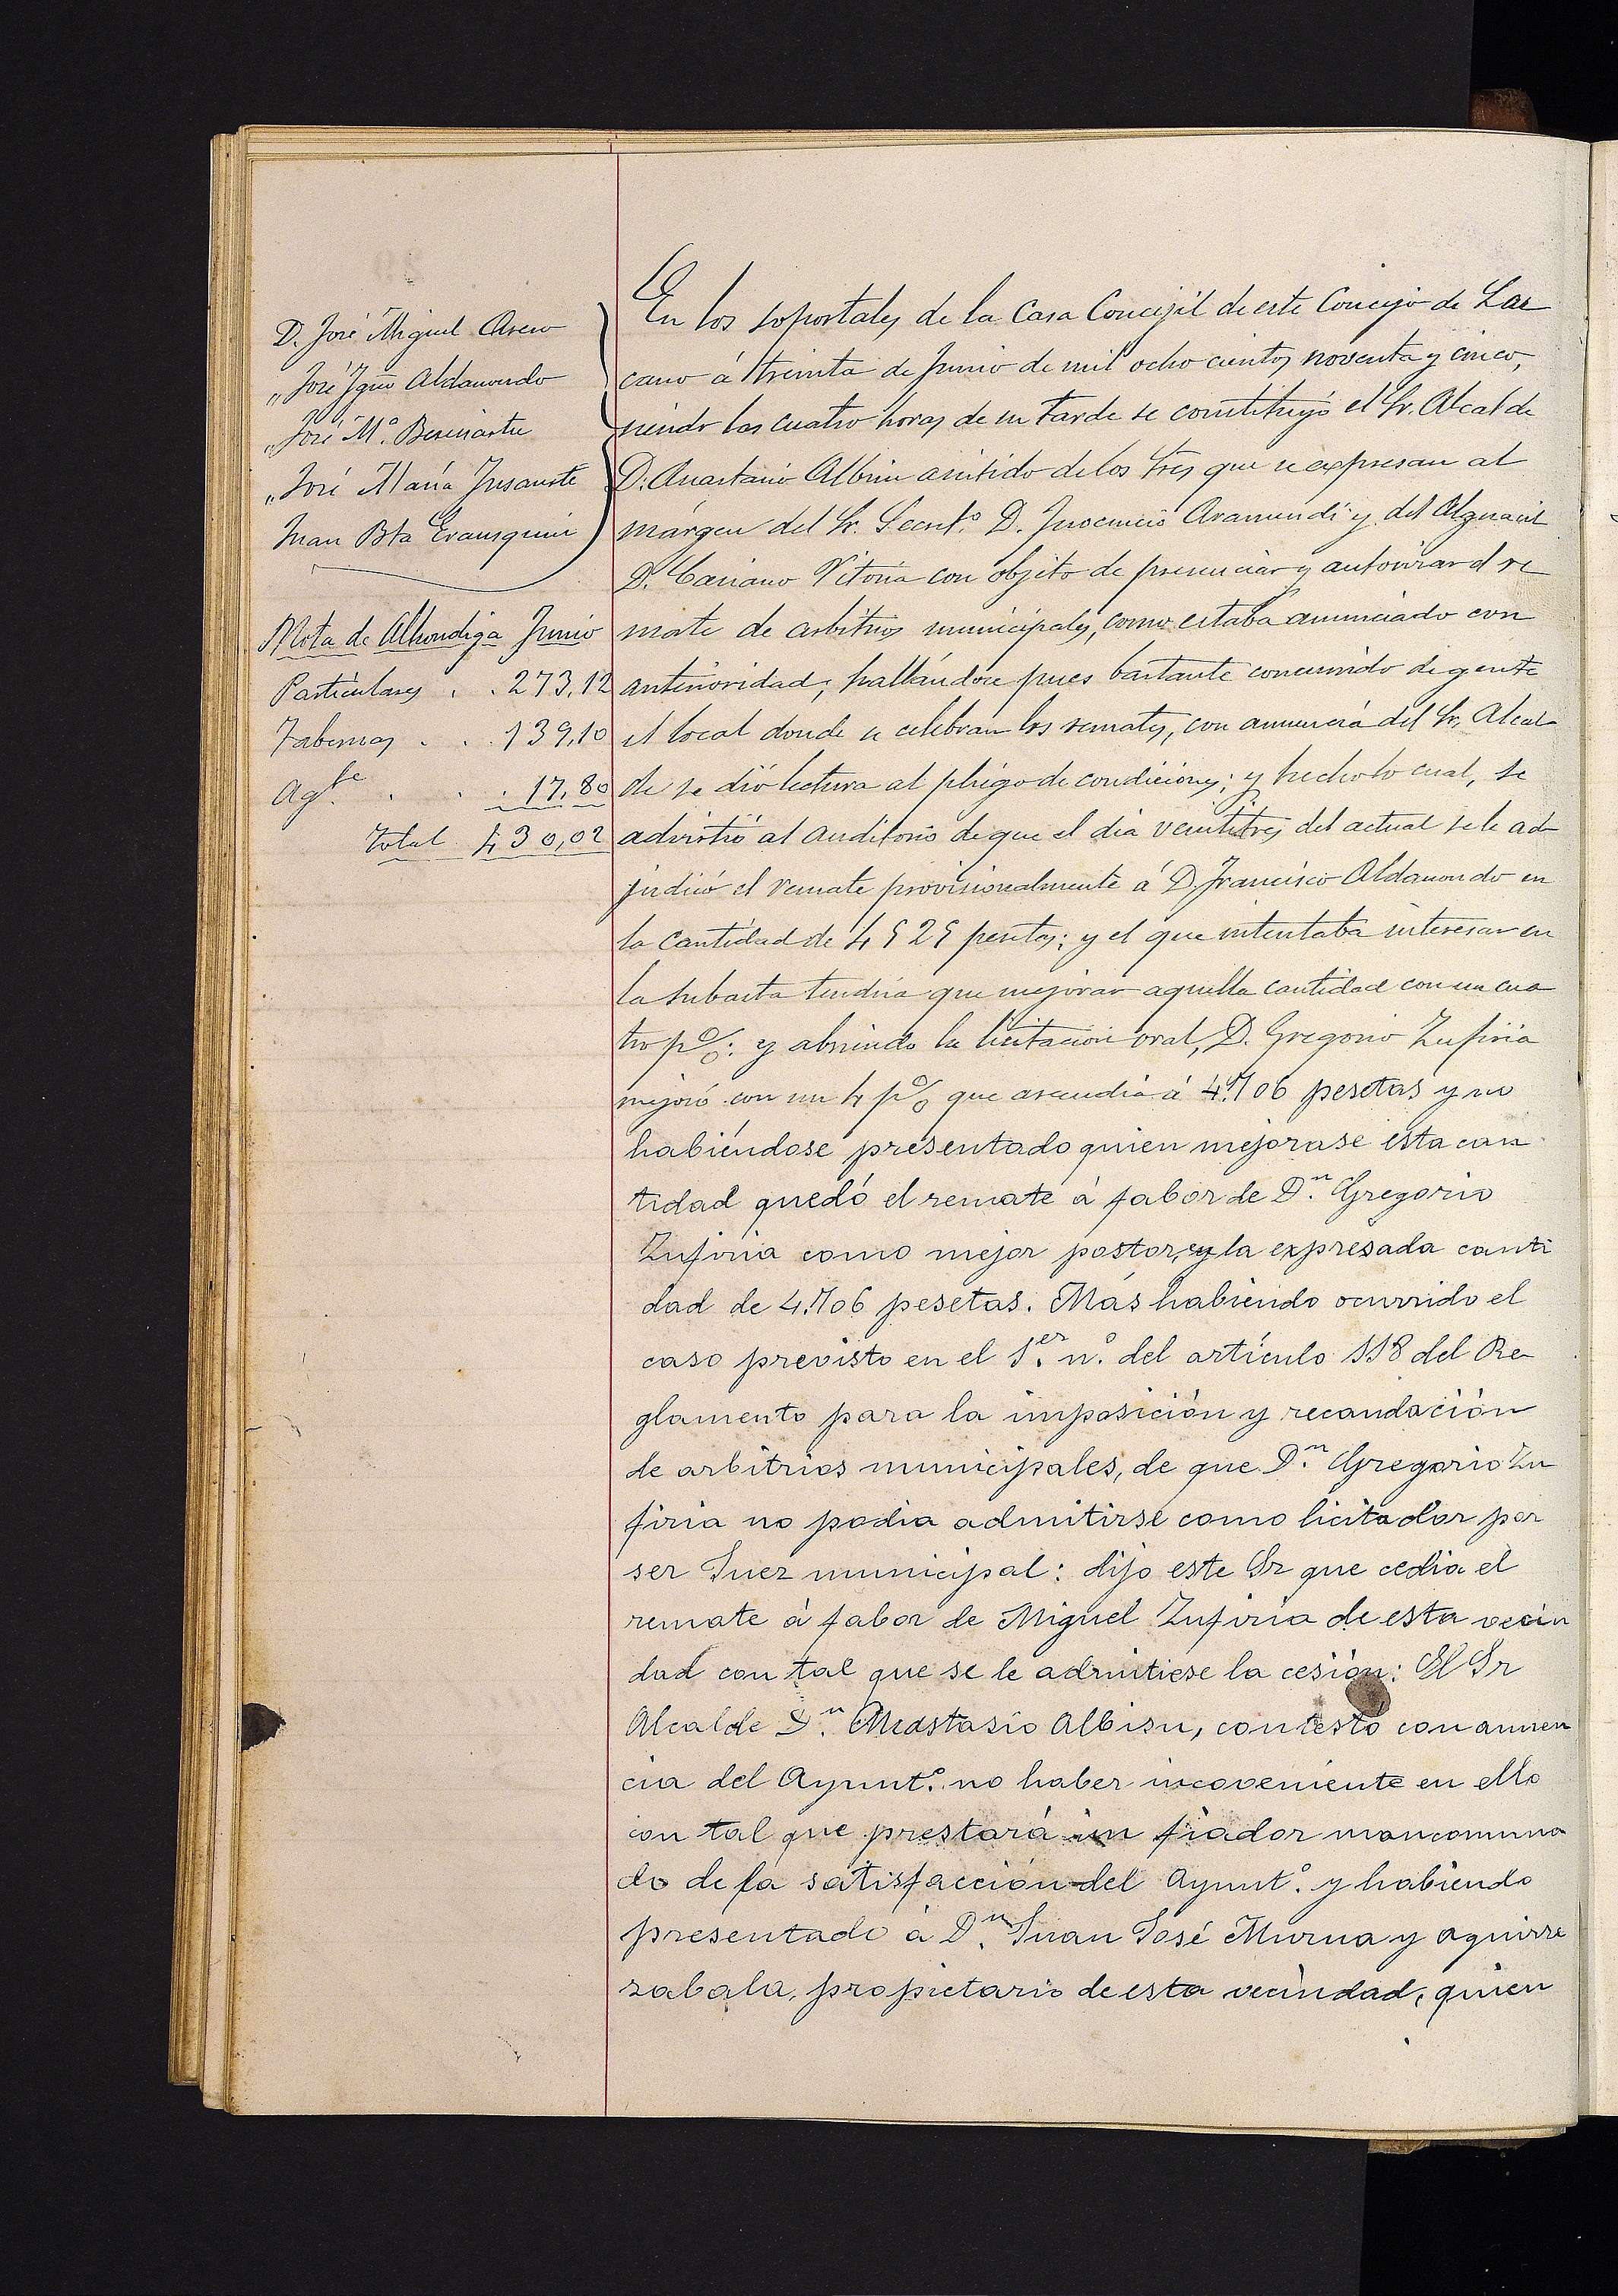 D. José Miguel Aseno
„ José Ygno Aldanondo
„ José Mª. Berinartu
„ José María Insausti
Juan Bta Erausquin
Nota de Alhondiga Junio
Particulares . . 273,12
Tabernas . . . 139,10
Agte. . . . 17,80
Total 430,02
En los soportales de la Casa Concejil de este Concejo de Laz
cano á treinta de Junio de mil ochocientos noventa y cinco,
siendo las cuatro horas de su tarde se constituyó el Sr. Alcalde
D. Anastasio Albisu asistido de los Sres que se expresan al
márgen del Sr. Secretº. D. Inocencio Aramendi y del Alguacil
D. Casiano Vitoria con objeto de presenciar y autorizar el re
mate de arbitrios municipales, como estaba anunciado con
anterioridad; hallándose pues bastante concurrido de gente
el local donde se celebran los remates, con anuencia del Sr. Alcal
de se dió lectura al pliego de condiciones; y hecho lo cual, se
advirtió al auditorio de que el dia veintitres del actual se le ad
judicó el remate provisionalmente á D. Francisco Aldanondo en
la cantidad de 4525 pesetas; y el que intentaba interesar en
la subasta tendria que mejorar aquella cantidad con un cua
tro p%: y abriendo la licitacion oral, D. Gregorio Zufiria
mejoró con un 4 p% que ascendia á 4.706 pesetas y no
habiéndose presentado quien mejorase esta can
tidad quedó el remate á fabor de Dn. Gregorio
Zufiria como mejor postor, en la expresada canti
dad de 4.706 pesetas. Más habiendo ocurrido el
caso previsto en el 1er. nº. del artículo 118 del Re
glamento para la imposición y recaudación
de arbitrios municipales, de que Dn. Gregorio Zu
firia no podia admitirse como licitador por
ser Juez municipal: dijo este Sr que cedia el
remate á fabor de Miguel Zufiria de esta vecin
dad con tal que se le admitiese la cesión: El Sr
Alcalde Dn. Anastasio Albisu, contestó con anuen
cia del Ayuntº. no haber incoveniente en ello
con tal que prestará un fiador mancomuna
do de la satisfacción del Ayuntº. y habiendo
presentado á Dn. Juan José Murua y Aguirre
zabala, propietario de esta vecindad, quien